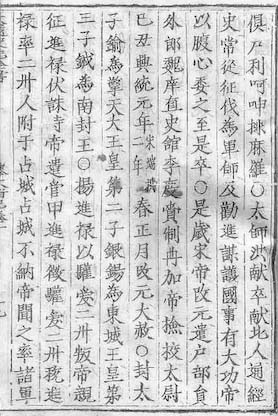 俱尸利呵呻排麻羅○太師洪献卒献北人通經
史常從征伐為軍師及勸進謀議國事有大功帝
以腹心委之至是卒○是歳宋帝改元遣户部員
外郎魏庠直史館李度賫制再加帝撿校太尉
己丑興統元年宋端拱二年春正月改元大赦○封太
子鍮為擎天大王皇第二子銀錫為東城王皇第
三子鉞為南封王○楊進禄以驩愛二州叛帝親
征進禄伏誅寺帝遣管甲進禄徴驩愛二州税進
禄率二州人附于占城占城不納帝聞之率諸軍